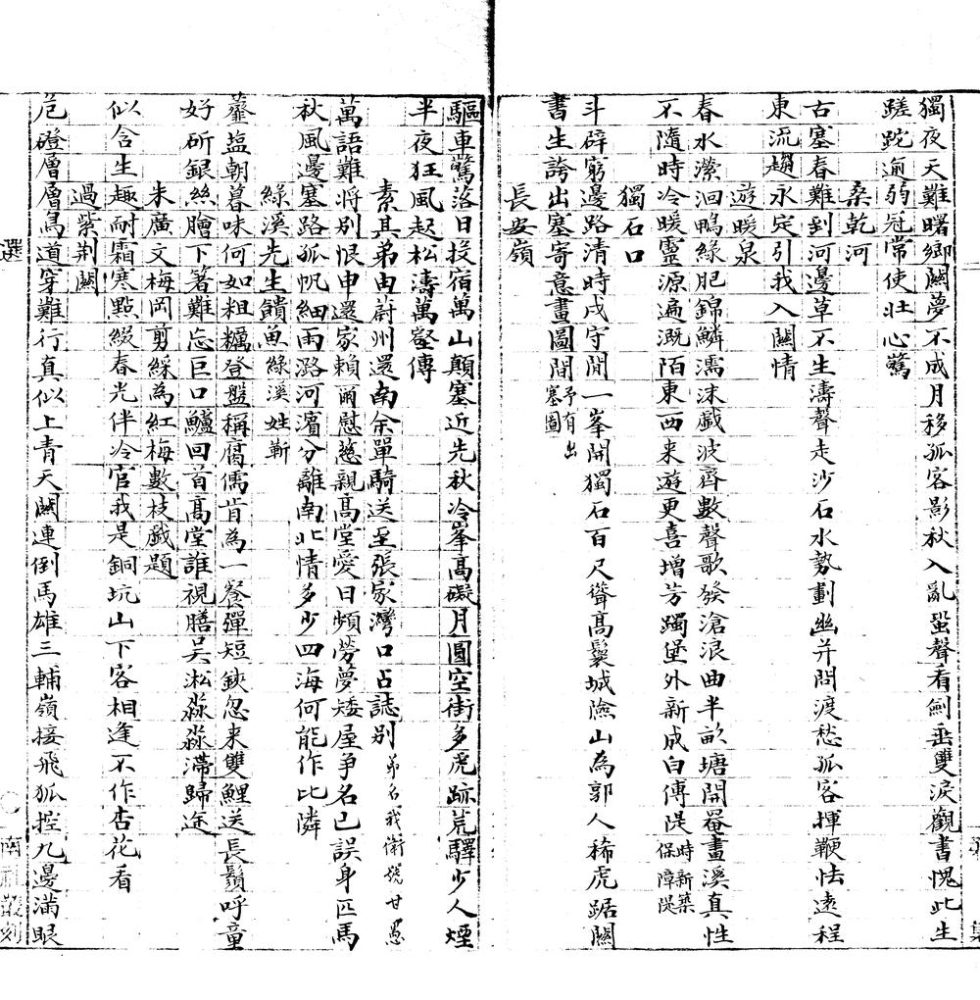 獨夜天難曙鄉關夢不成月移孤客影秋入亂蛩聲看劍垂雙淚觀書愧此生
蹉跎逾弱冠常使壯心驚
桑乾河
古塞春難到河邊草不生濤聲走沙石水勢劃幽并問渡愁孤客揮鞭怯遠程
東流趨永定引我入關情
遊暖泉
春水瀠洄鴨綠肥錦鱗濡沫戲波齊數聲歌發滄浪曲半畝塘開罨畫溪真性
不隨時冷暖靈源遍溉陌東西来遊更喜增芳躅堡外新成白傅隄時新築保障隄
獨石口
斗辟窮邊路清時戍守閒一峯開獨石百尺聳高鬟城險山為郭人稀虎踞關
書生誇出塞寄意畫圖閒予有出塞圖
長安嶺
驅車驚落日投宿萬山顛塞近先秋冷峯高礙月圓空街多虎跡荒驛少人煙
半夜狂風起松濤萬壑傳
素其弟由蔚州還南余單騎送至張家灣口占誌別弟名我衛號甘愚
萬語難將別恨申還家賴爾慰慈親高堂愛日頻勞夢矮屋爭名已誤身匹馬
秋風邊塞路孤帆細雨潞河濱分離南北情多少四海何能作比隣
綠溪先生饋魚綠溪姓靳
虀塩朝暮味何如粗糲登盤稱腐儒肯為一餐彈短鋏忽来雙鯉送長鬚呼童
好斫銀絲膾下箸難忘巨口鱸回首高堂誰視膳吴淞淼淼滯歸途
朱廣文梅岡剪綵為紅梅數枝戲題
似含生趣耐霜寒點綴春光伴冷官我是銅坑山下客相逢不作杏花看
過紫荆關
危磴層層鳥道穿難行真似上青天關連倒馬雄三輔嶺接飛狐控九邊滿眼
選
叢刻
集